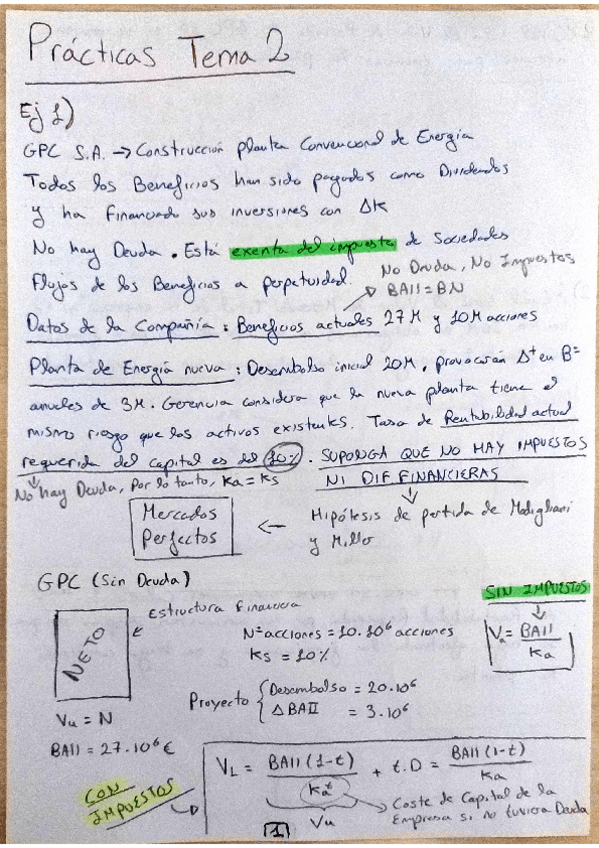 Prácticas Tema 2
Ej 1)
GPC S.A. → Construcción planta Convencional de Energía
Todos los Beneficios han sido pagados como Dividendos
y ha financiado sus inversiones con ΔK
No hay Deuda. Está exenta del impuesto de Sociedades
Flujos de los Beneficios a perpetuidad.
No Deuda, No Impuestos
BAII = BN
Datos de la Compañia: Beneficios actuales 27M y 10M acciones
Planta de Energía nueva: Desembolso inicial 20M, provocarán Δ⁺ en Bº
anuales de 3M. Gerencia considera que la nueva planta tiene el
mismo riesgo que los activos existentes. Tasa de Rentabilidad actual
requerida del capital es del 10%. SUPONGA QUE NO HAY IMPUESTOS
NI DIF FINANCIERAS
No hay Deuda, Por lo tanto, Ka = Ks
Mercados
Perfectos
← Hipótesis de partida de Modigliani
y Miller
GPC (Sin Deuda)
SIN IMPUESTOS
Estructura Financiera
NETO
Nº acciones = 10.10⁶ acciones
Ks = 10%
Vu = BAII / Ka
Proyecto { Desembolso = 20.10⁶
Δ BAII = 3.10⁶
Vu = N
BAII = 27.10⁶ €
CON
IMPUESTOS
VL = BAII (1-t) / Kaᵗ + t.D = BAII (1-t) / Ka
Vu
Coste de Capital de la
Empresa si no tuviera Deuda
1